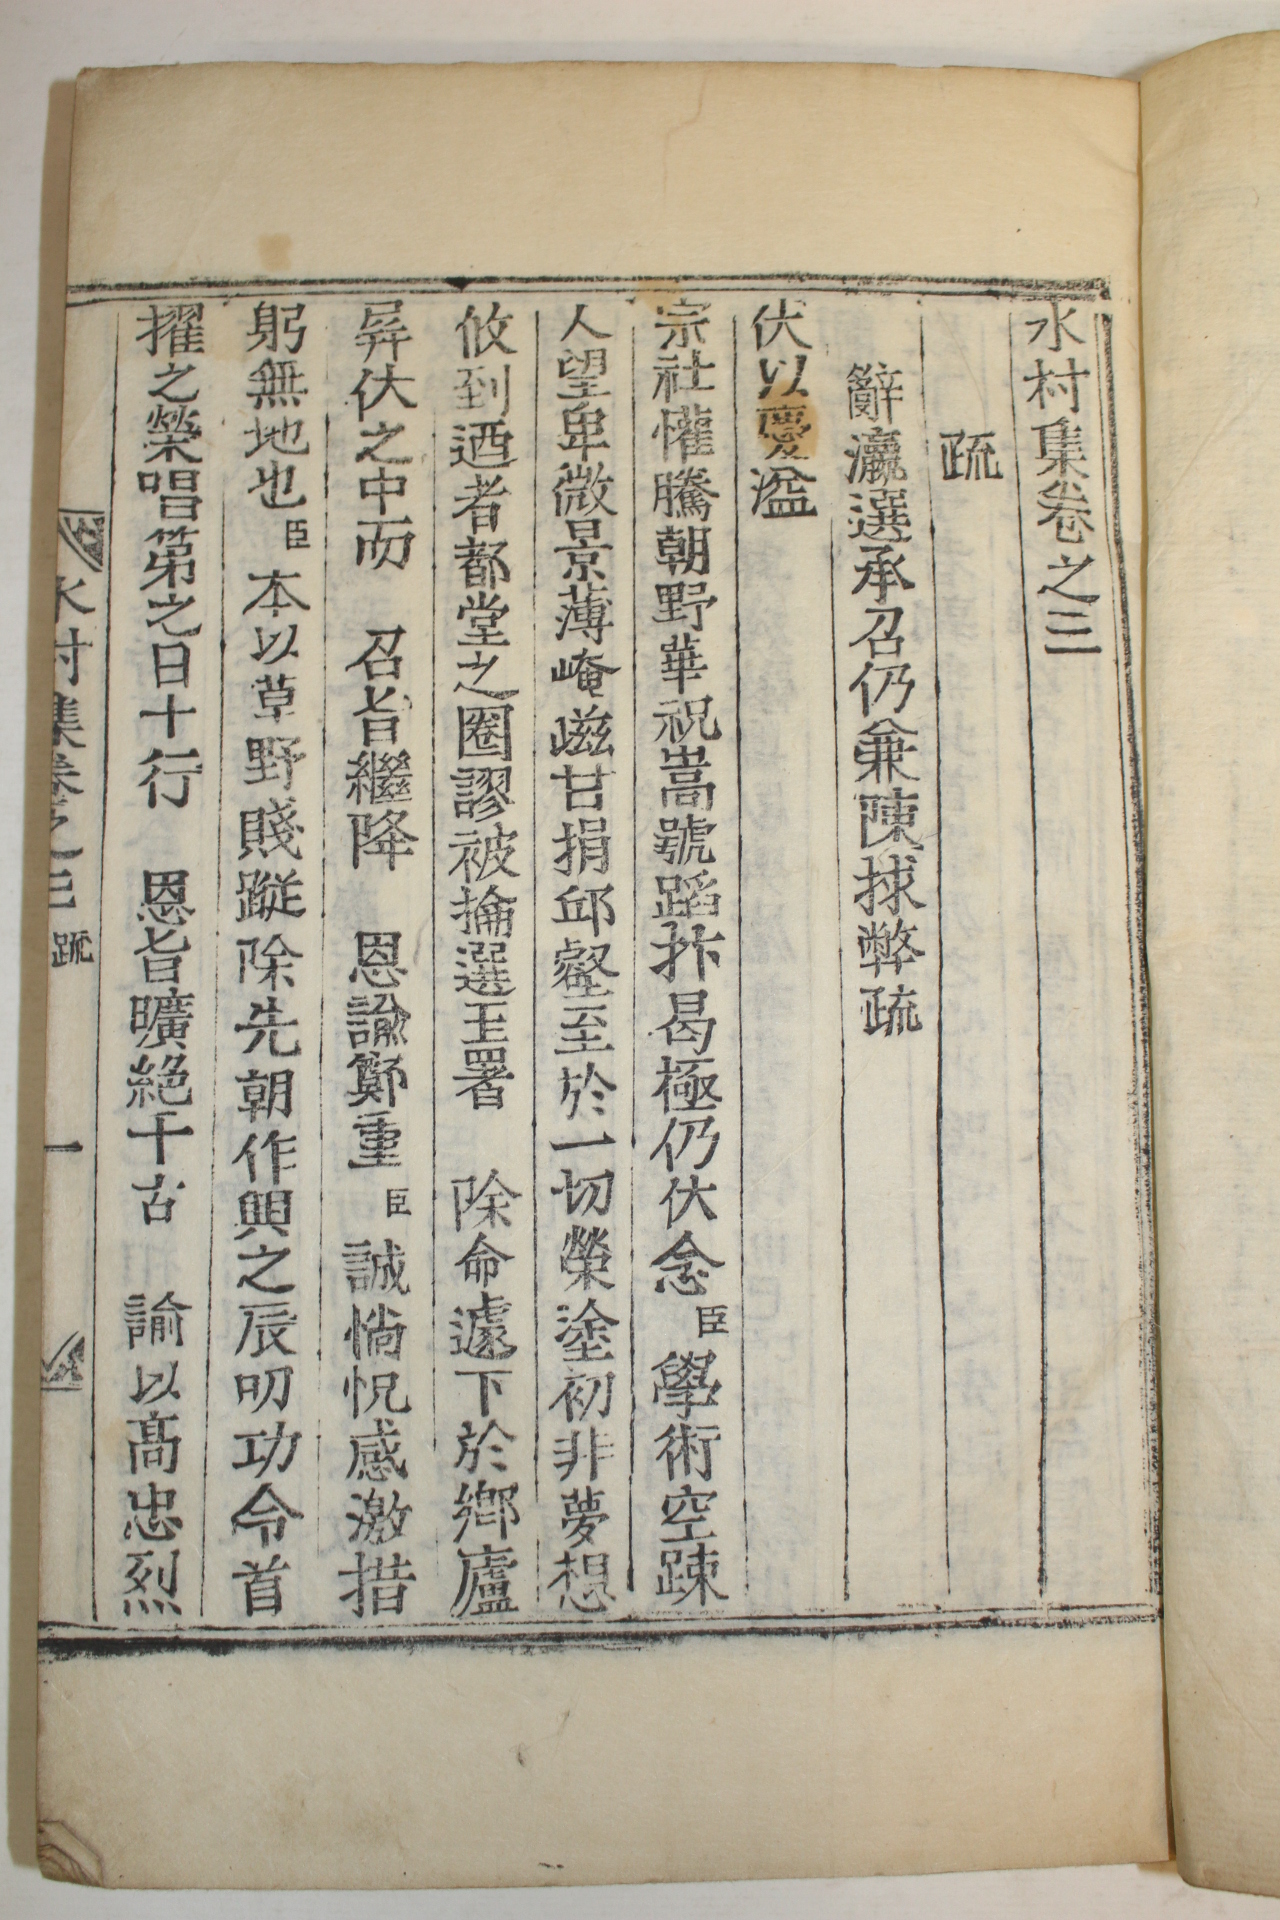 水村集卷之三
疏
辭瀛選承召仍兼陳捄弊疏
伏以慶溢
宗社懽騰朝野華祝嵩號蹈抃曷極仍伏念臣學術空踈
人望卑微景薄崦嵫甘捐邱壑至於一切榮塗初非夢想
攸到迺者都堂之圈謬被掄選玉署 除命遽下於鄉廬
屛伏之中而 召旨繼降 恩諭鄭重臣誠惝怳感激措
躬無地也臣本以草野賤蹤除先朝作興之辰叨功令首
擢之榮唱第之日十行 恩旨曠絶千古 諭以高忠烈
水村集卷之三 疏 一